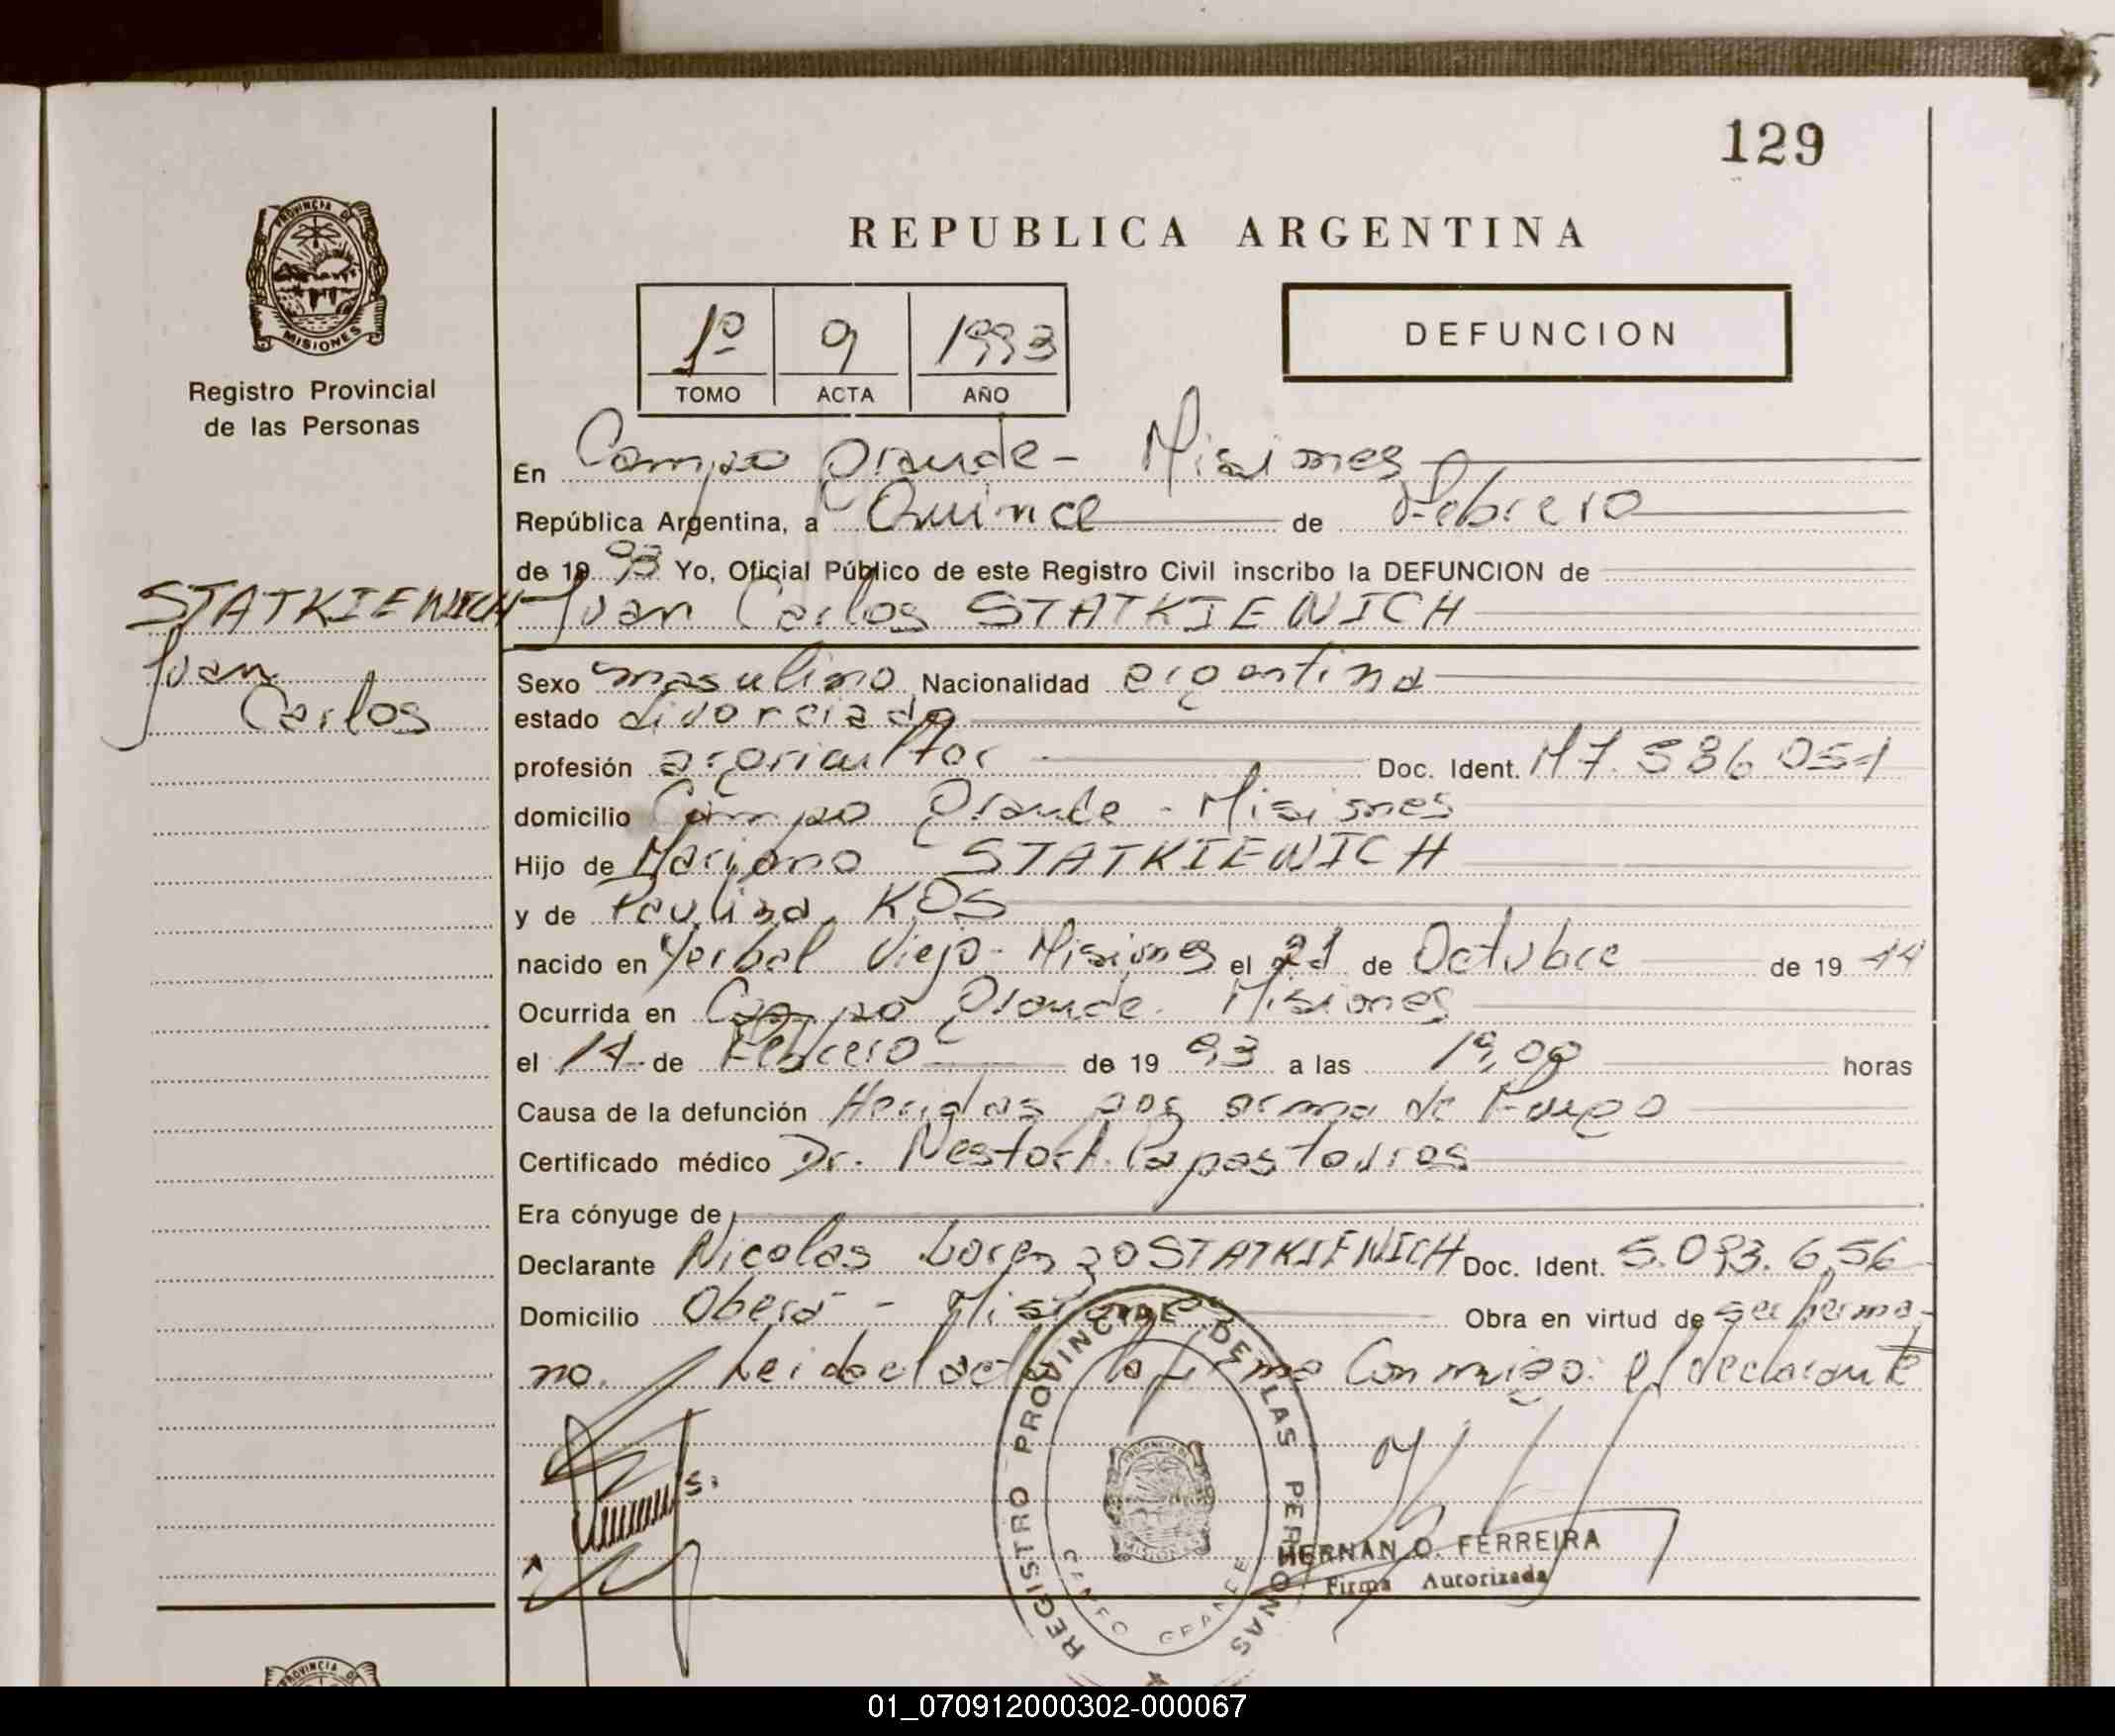 129
REPUBLICA ARGENTINA
PROVINCIA DE
MISIONES
Registro Provincial
de las Personas
1º 9 1993
TOMO ACTA AÑO
DEFUNCION
En Campo Grande - Misiones
República Argentina, a Quince de Febrero
de 19 93 Yo, Oficial Público de este Registro Civil inscribo la DEFUNCION de
STATKIEWICH
Juan
Carlos
Juan Carlos STATKIEWICH
Sexo masculino Nacionalidad argentina
estado divorciado
profesión agricultor Doc. Ident. M 7.586.051
domicilio Campo Grande - Misiones
Hijo de Mariano STATKIEWICH
y de Paulina KOS
nacido en Yerbal Viejo - Misiones el 21 de Octubre de 19 44
Ocurrida en Campo Grande - Misiones
el 14 de Febrero de 19 93 a las 19,00 horas
Causa de la defunción Heridas por arma de Fuego
Certificado médico Dr. Nestor A. Papastavros
Era cónyuge de
Declarante Nicolas Lorenzo STATKIEWICH Doc. Ident. 5.093.656
Domicilio Oberá - Misiones Obra en virtud de ser herma-
no. Leida el acta la firma Conmigo el declarante
REGISTRO PROVINCIAL DE LAS PERSONAS
CAMPO GRANDE
HERNAN O. FERREIRA
Firma Autorizada
PROVINCIA DE
01_070912000302-000067